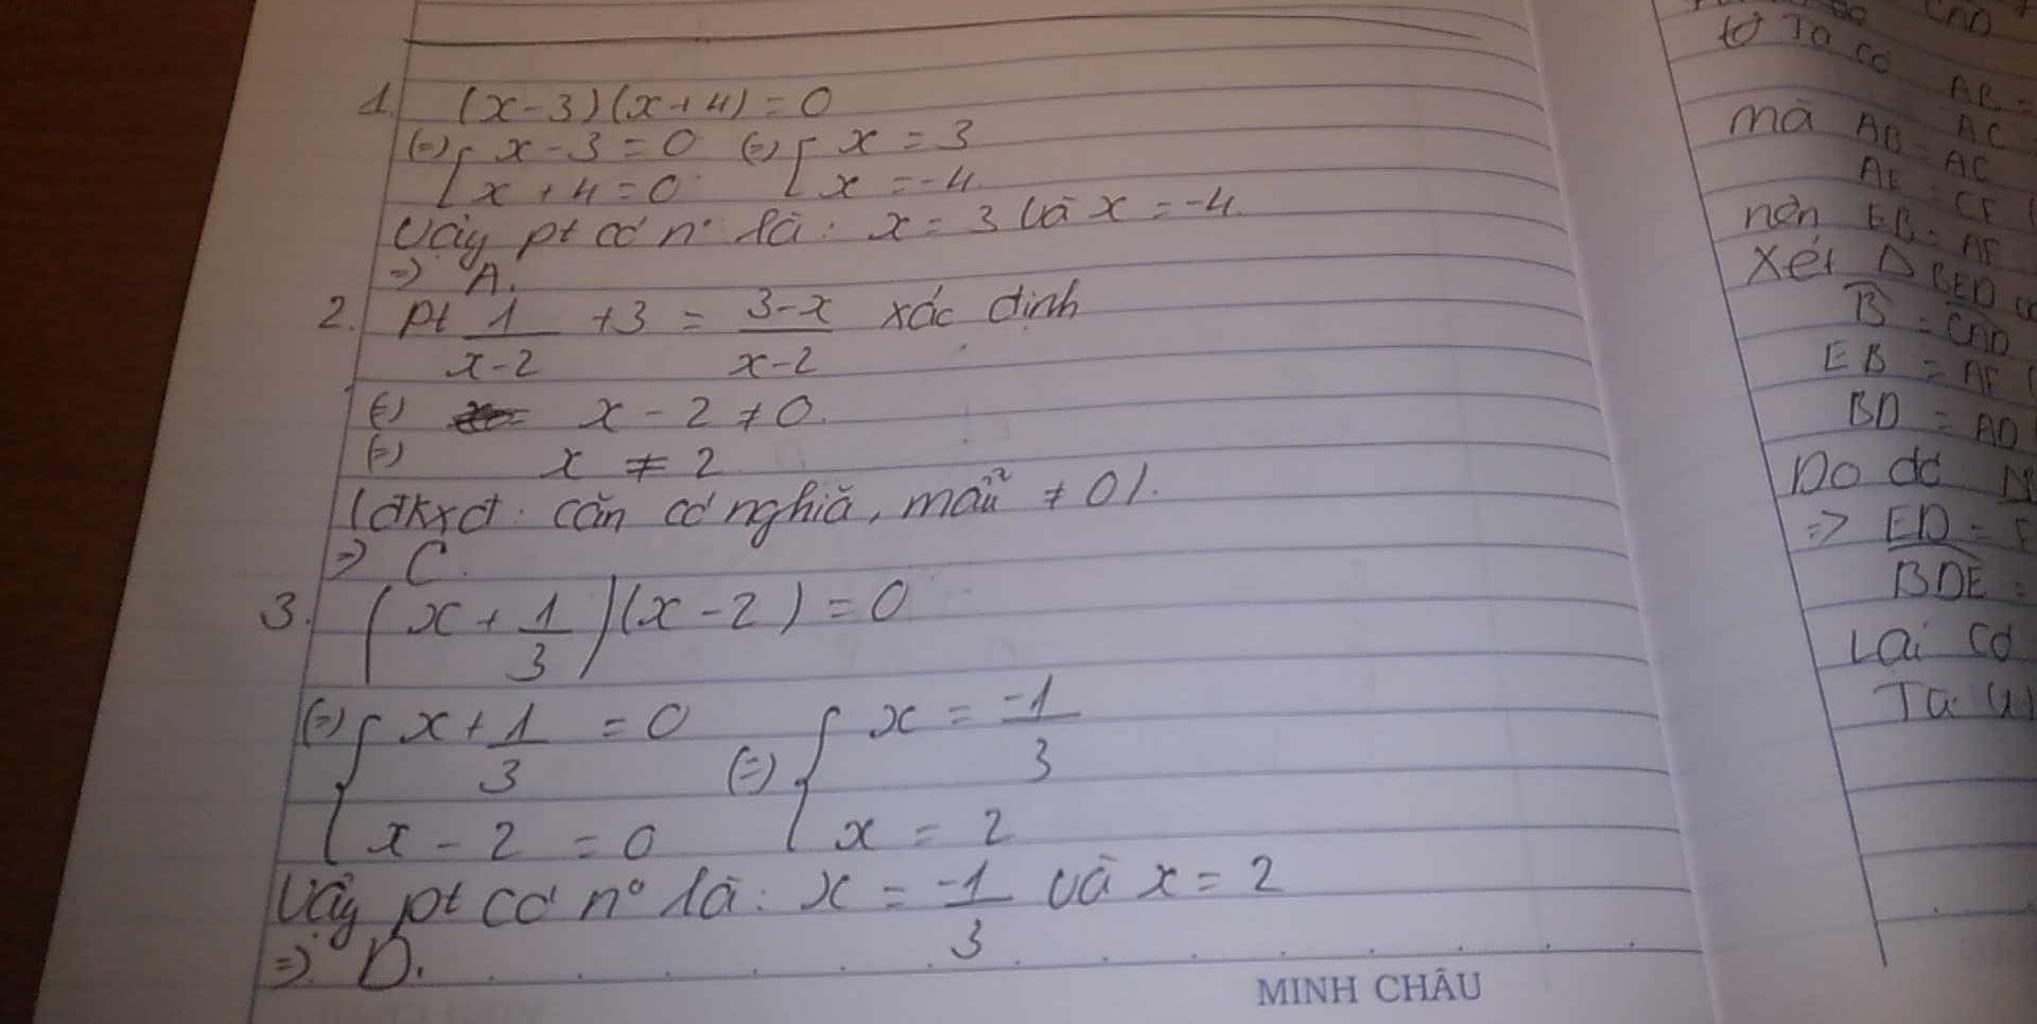 1. (x-3)(x+4)=0
(=) [ x-3=0 (=) [ x=3
[ x+4=0 [ x=-4.
Vậy pt có n° là: x=3 và x=-4.
=> A.
2. pt 1/(x-2) +3 = (3-x)/(x-2) xác định
(=) x-2≠0.
(=) x ≠ 2
(đkxđ: căn có nghiã, mẫu ≠ 0).
=> C.
3. (x+1/3)(x-2)=0
(=) { x+1/3 =0 (=) { x = -1/3
{ x-2=0 { x=2
Vậy pt có n° là: x = -1/3 và x=2
=> D.
MINH CHÂU
b) Ta có
AB =
mà AB = AC
AE = CF
nên EB = AF
Xét Δ BED
EB = AF
BD = AD
Do đó
=> ED =
BDE =
Lại có
Ta